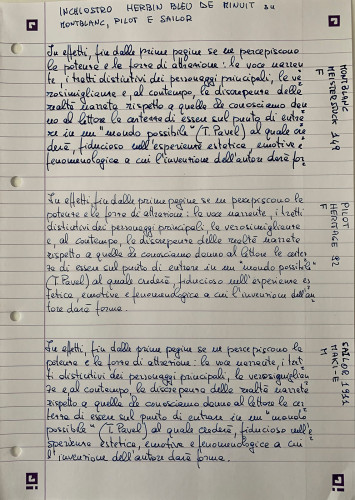 INCHIOSTRO HERBIN BLEU DE MINUIT su
MONTBLANC, PILOT E SAILOR
In effetti, fin dalle prime pagine se ne percepiscono
la potenza e la forza di attrazione: la voce narran
te, i tratti distintivi dei personaggi principali, la ve
rosimiglianza e, al contempo, la discrepanza della
realtà narrata rispetto a quella da conosciamo dan
no al lettore la certezza di essere sul punto di entra
re in un "mondo possibile" (T. Pavel) al quale cre
derà, fiducioso nell'esperienza estetica, emotiva e
fenomenologica a cui l'invenzione dell'autore darà for
MONTBLANC
MEISTERSTÜCK 149
F
In effetti, fin dalle prime pagine se ne percepiscono la
potenza e la forza di attrazione: la voce narrante, i tratti
distintivi dei personaggi principali, la verosimiglianza
e, al contempo, la discrepanza della realtà narrata
rispetto a quella da conosciamo danno al lettore la certez
za di essere sul punto di entrare in un "mondo possibile"
(T. Pavel) al quale crederà, fiducioso nell'esperienza es
tetica, emotiva e fenomenologica a cui l'invenzione dell'au
tore darà forma.
PILOT
HERITAGE 92
F
In effetti, fin dalle prime pagine se ne percepiscono la
potenza e la forza di attrazione: la voce narrante, i trat
ti distintivi dei personaggi principali, la verosimiglian
za e, al contempo, la discrepanza della realtà narrata
rispetto a quella da conosciamo danno al lettore la cer
tezza di essere sul punto di entrare in un "mondo
possibile" (T. Pavel) al quale crederà, fiducioso nell'e
sperienza estetica, emotiva e fenomenologica a cui
l'invenzione dell'autore darà forma.
SAILOR 1911
MAKI-E
M